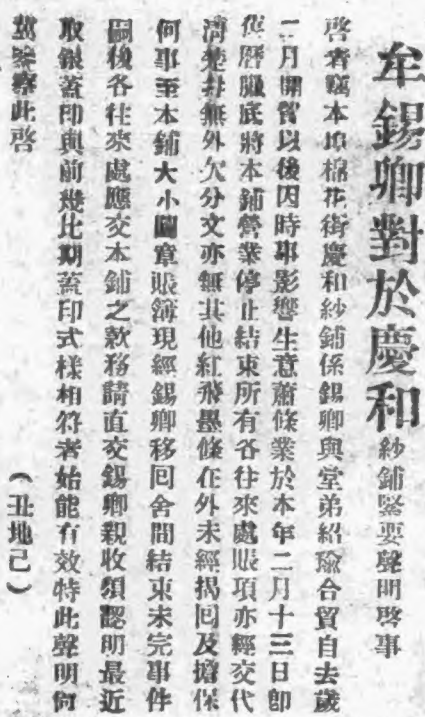 牟錫卿對於慶和紗鋪緊要聲明啓事
啓者竊本埠棉花街慶和紗鋪係錫卿與堂弟紹瑜合貿自去歲
二月開貿以後因時事影響生意蕭條業於本年二月十三日卽
舊曆臘底將本鋪營業停止結束所有各往來處賬項亦經交代
清楚幷無外欠分文亦無其他紅飛墨條在外未經揭回及擔保
何事至本鋪大小圖章賬簿現經錫卿移回舍間結束未完事件
嗣後各往來處應交本鋪之款務請直交錫卿親收須認明最近
取銀蓋印與前幾比期蓋印式樣相符者始能有效特此聲明向
鑒察此啓
(丑地己)